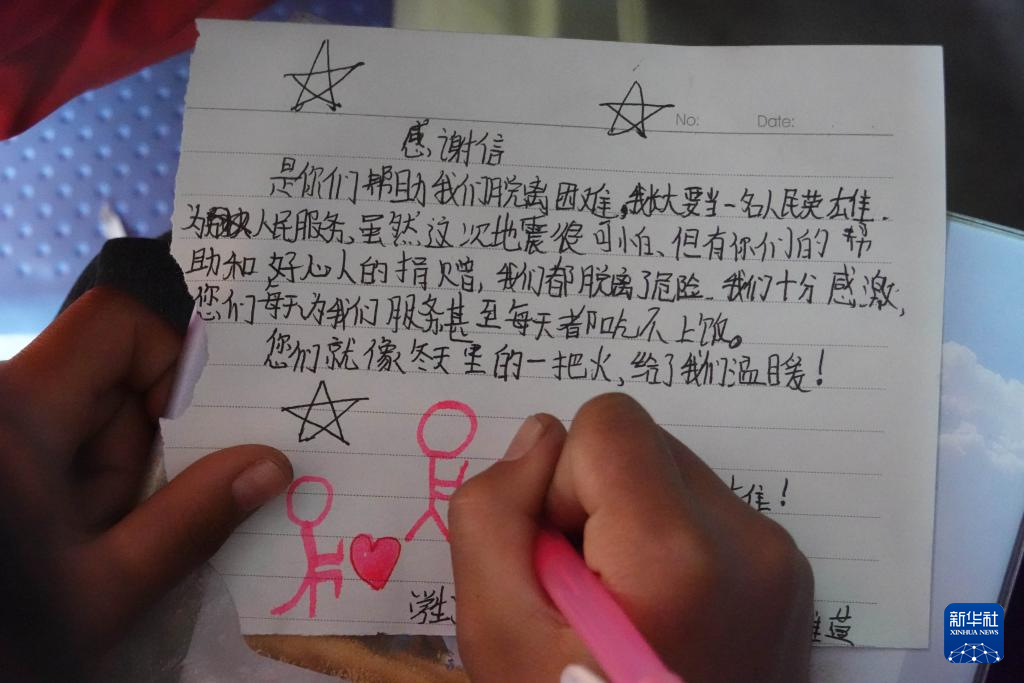 No: Date:
感谢信
是你们帮助我们脱离困难,我长大要当一名人民英雄.
为人民服务,虽然这次地震很可怕、但有你们的帮
助和好心人的捐赠,我们都脱离了危险.我们十分感激,
您们每天为我们服务甚至每天都吃不上饭。
您们就像冬天里的一把火,给了我们温暖!
雄!
学生
新华社
XINHUA NEWS